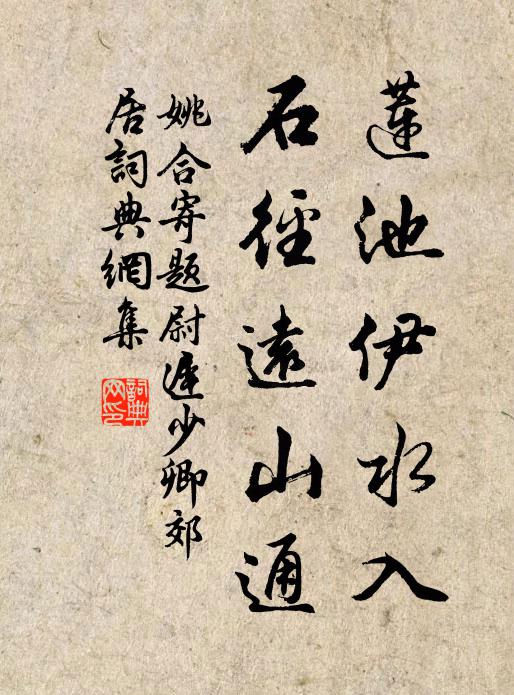 蓮池伊水入
石徑遠山通
姚合寄題尉遲少卿郊
居詞典網集
詞典
网印